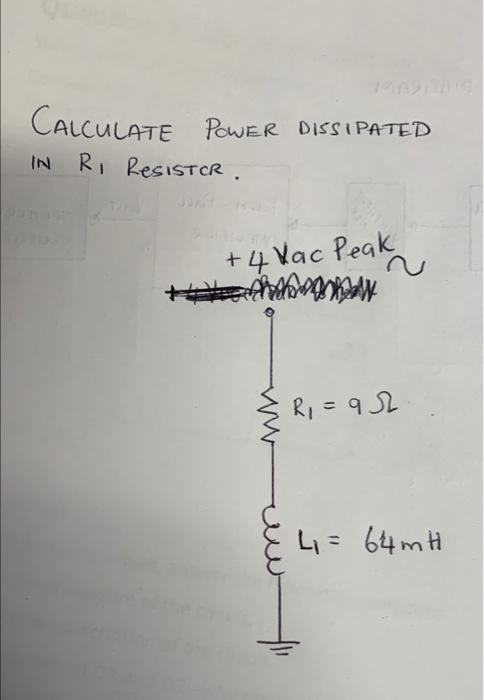 CALCULATE POWER DISSIPATED
IN R1 RESISTOR.
+4 Vac Peak ~
R1 = 9 Ω
L1 = 64mH